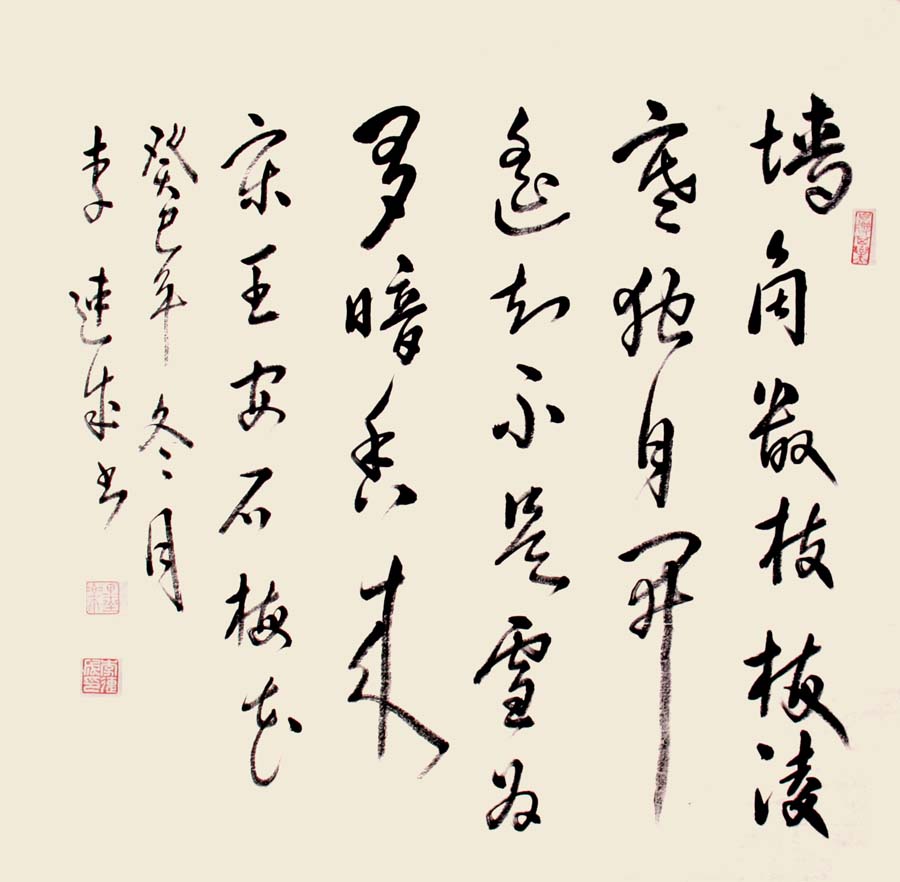 墙角数枝梅凌
寒独自開
遥知不是雪为
有暗香来
宋王安石梅花
癸巳年冬月
李連成书